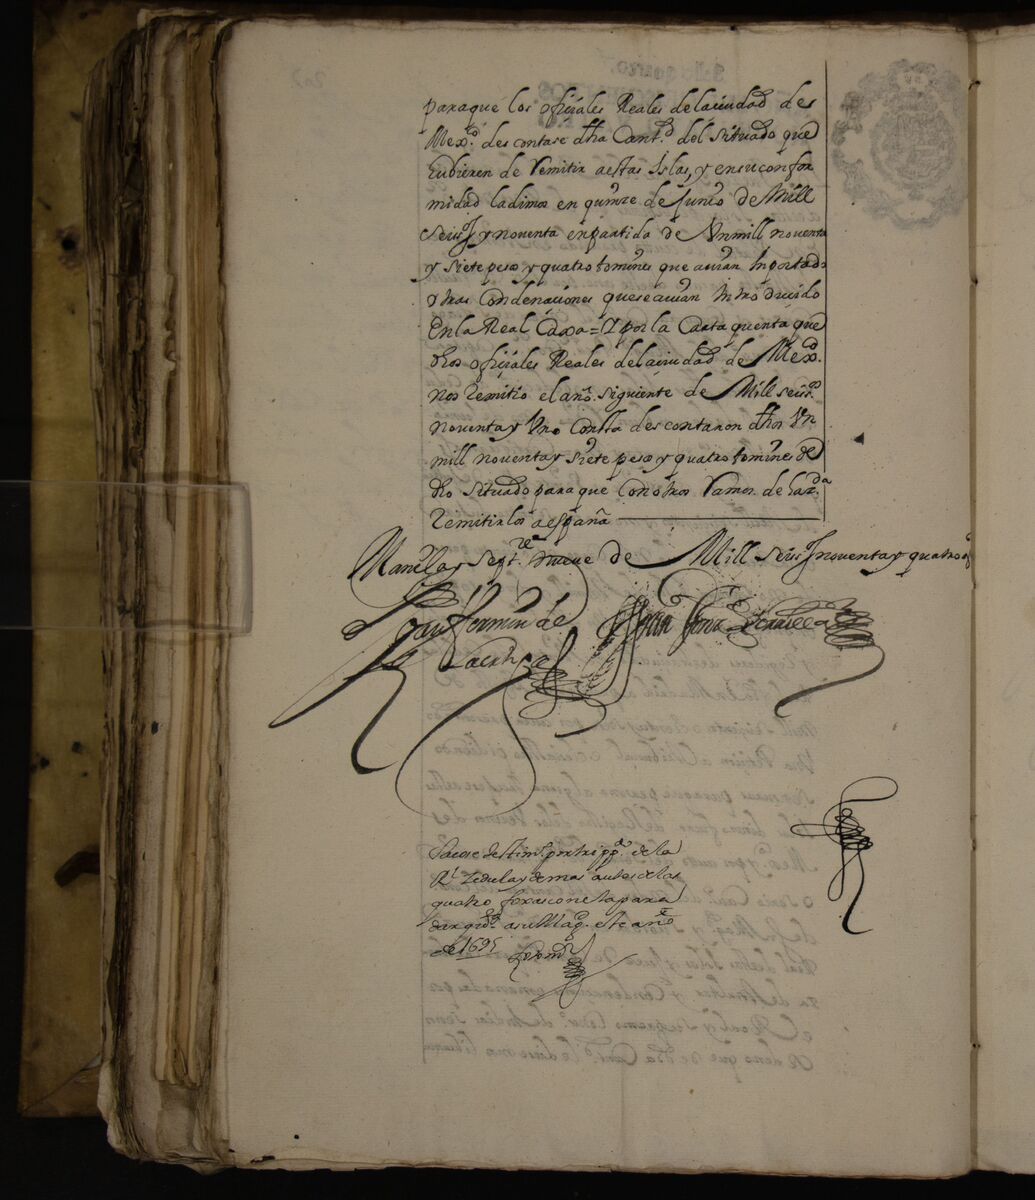 paraque los ofiçiales Reales dela ciudad de
Mex.co descontase dha Cant.d del situado que
Hubieren de Remitir a estas Islas, y en su confor
midad la dimos en quinze de Junio de Mill
Seis.s y noventa en partida de Un mill noventa
y siete pesos y quatro tomines que avian Inportado
otras Condenaciones que se avian Introduçido
En la Real Caxa = Y por la Carta quenta que
dhos ofiçiales Reales dela ciudad de Mex.co
nos Remitio el año siguiente de Mill seis.os
noventa y Uno Consta descontaron dhos Un
mill noventa y siete pesos y quatro tomines de
dho situado para que Con otros Ramos de haz.da
Remitirlos a españa
Manila y Sept.re nueve de Mill Seis.s y noventa y quatro a.s
Sacose testim.o por trip.do de la
R.l Zedula y demas autos de las
quatro foxas con esta para
dar q.ta a su Mag.d este año
de 1695